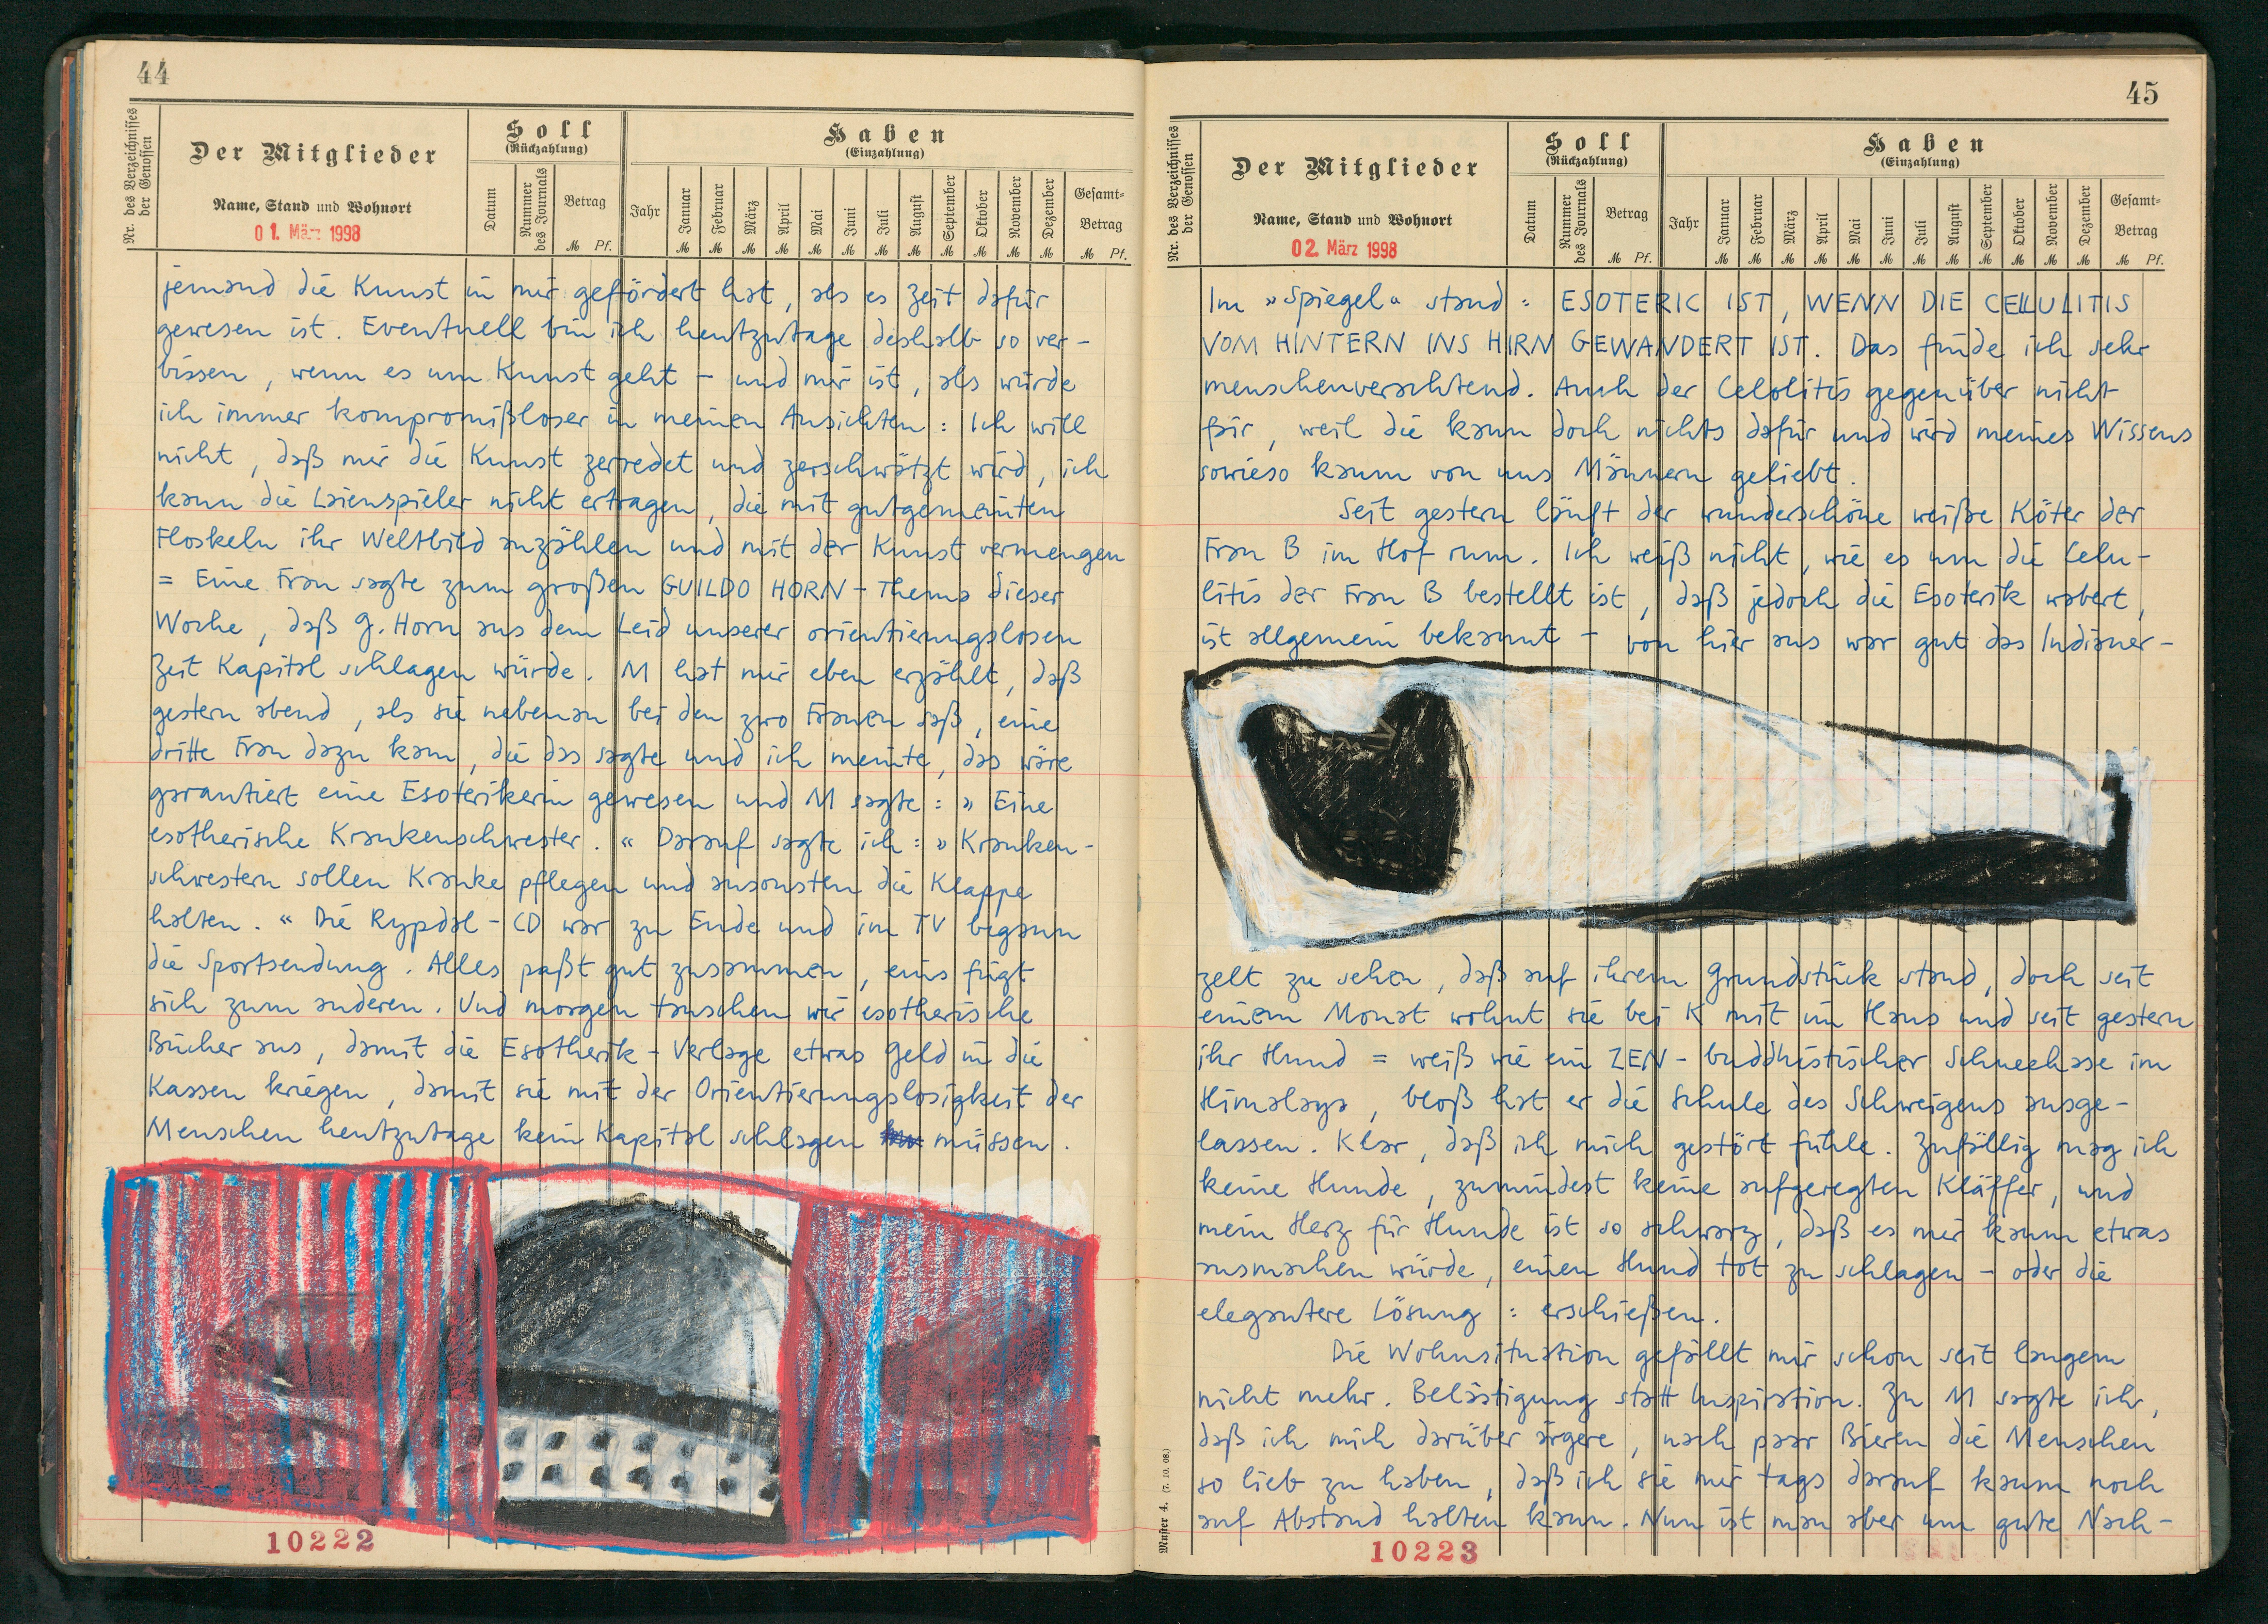 44
Nr. des Verzeichnisses der Genossen
Der Mitglieder
Name, Stand und Wohnort
01. März 1998
Soll
(Rückzahlung)
Datum
Nummer des Journals
Betrag
M Pf.
Haben
(Einzahlung)
Jahr
Januar Februar März April Mai Juni Juli August September Oktober November Dezember
M M M M M M M M M M M M
Gesamt-
Betrag
M Pf.
jemand die Kunst in mir gefördert hat, als es Zeit dafür
gewesen ist. Eventuell bin ich heutzutage deshalb so ver-
bissen, wenn es um Kunst geht – und mir ist, als würde
ich immer kompromißloser in meinen Ansichten: Ich will
nicht, daß mir die Kunst zerredet und zerschwätzt wird, ich
kann die Laienspieler nicht ertragen, die mit gutgemeinten
Floskeln ihr Weltbild anzählen und mit der Kunst vermengen
= Eine Frau sagte zum großen GUILDO HORN – Thema dieser
Woche, daß G. Horn aus dem Leid unserer orientierungslosen
Zeit Kapital schlagen würde. M hat mir eben erzählt, daß
gestern abend, als sie nebenan bei den zwo Frauen saß, eine
dritte Frau dazu kam, die das sagte und ich meinte, das wäre
garantiert eine Esoterikerin gewesen und M sagte: » Eine
esotherische Krankenschwester. « Darauf sagte ich: » Kranken-
schwestern sollen Kranke pflegen und ansonsten die Klappe
halten. « Die Rypdal – CD war zu Ende und im TV begann
die Sportsendung. Alles paßt gut zusammen, eins fügt
sich zum anderen. Und morgen tauschen wir esotherische
Bücher aus, damit die Esotherik – Verlage etwas Geld in die
Kassen kriegen, damit sie mit der Orientierungslosigkeit der
Menschen heutzutage kein Kapital schlagen müssen.
10222
45
Nr. des Verzeichnisses der Genossen
Der Mitglieder
Name, Stand und Wohnort
02. März 1998
Soll
(Rückzahlung)
Datum
Nummer des Journals
Betrag
M Pf.
Haben
(Einzahlung)
Jahr
Januar Februar März April Mai Juni Juli August September Oktober November Dezember
M M M M M M M M M M M M
Gesamt-
Betrag
M Pf.
Im »Spiegel« stand: ESOTERIC IST, WENN DIE CELLULITIS
VOM HINTERN INS HIRN GEWANDERT IST. Das finde ich sehr
menschenverachtend. Auch der Celolitis gegenüber nicht
fair, weil die kann doch nichts dafür und wird meines Wissens
sowieso kaum von uns Männern geliebt.
Seit gestern läuft der wunderschöne weiße Köter der
Frau B im Hof rum. Ich weiß nicht, wie es um die Celu-
litis der Frau B bestellt ist, daß jedoch die Esoterik wabert,
ist allgemein bekannt – von hier aus war gut das Indianer-
zelt zu sehen, daß auf ihrem Grundstück stand, doch seit
einem Monat wohnt sie bei K mit im Haus und seit gestern
ihr Hund = weiß wie ein ZEN – buddhistischer Schneehase im
Himalaya, bloß hat er die Schule des Schweigens ausge-
lassen. Klar, daß ich mich gestört fühle. Zufällig mag ich
keine Hunde, zumindest keine aufgeregten Kläffer, und
mein Herz für Hunde ist so schwarz, daß es mir kaum etwas
ausmachen würde, einen Hund tot zu schlagen – oder die
elegantere Lösung: erschießen.
Die Wohnsituation gefällt mir schon seit langem
nicht mehr. Belästigung statt Inspiration. Zu M sagte ich,
daß ich mich darüber ärgere, nach paar Bieren die Menschen
so lieb zu haben, daß ich sie mir tags darauf kaum noch
auf Abstand halten kann. Nun ist man aber um gute Nach-
Muster 4. (7. 10. 08.)
10223